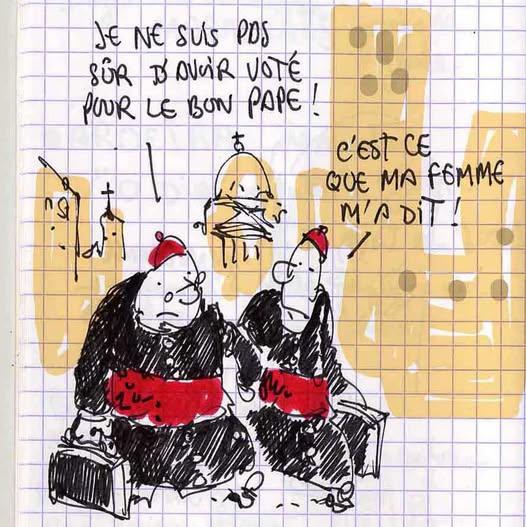 JE NE SUIS PAS
SÛR D'AVOIR VOTÉ
POUR LE BON PAPE !
C'EST CE
QUE MA FEMME
M'A DIT !